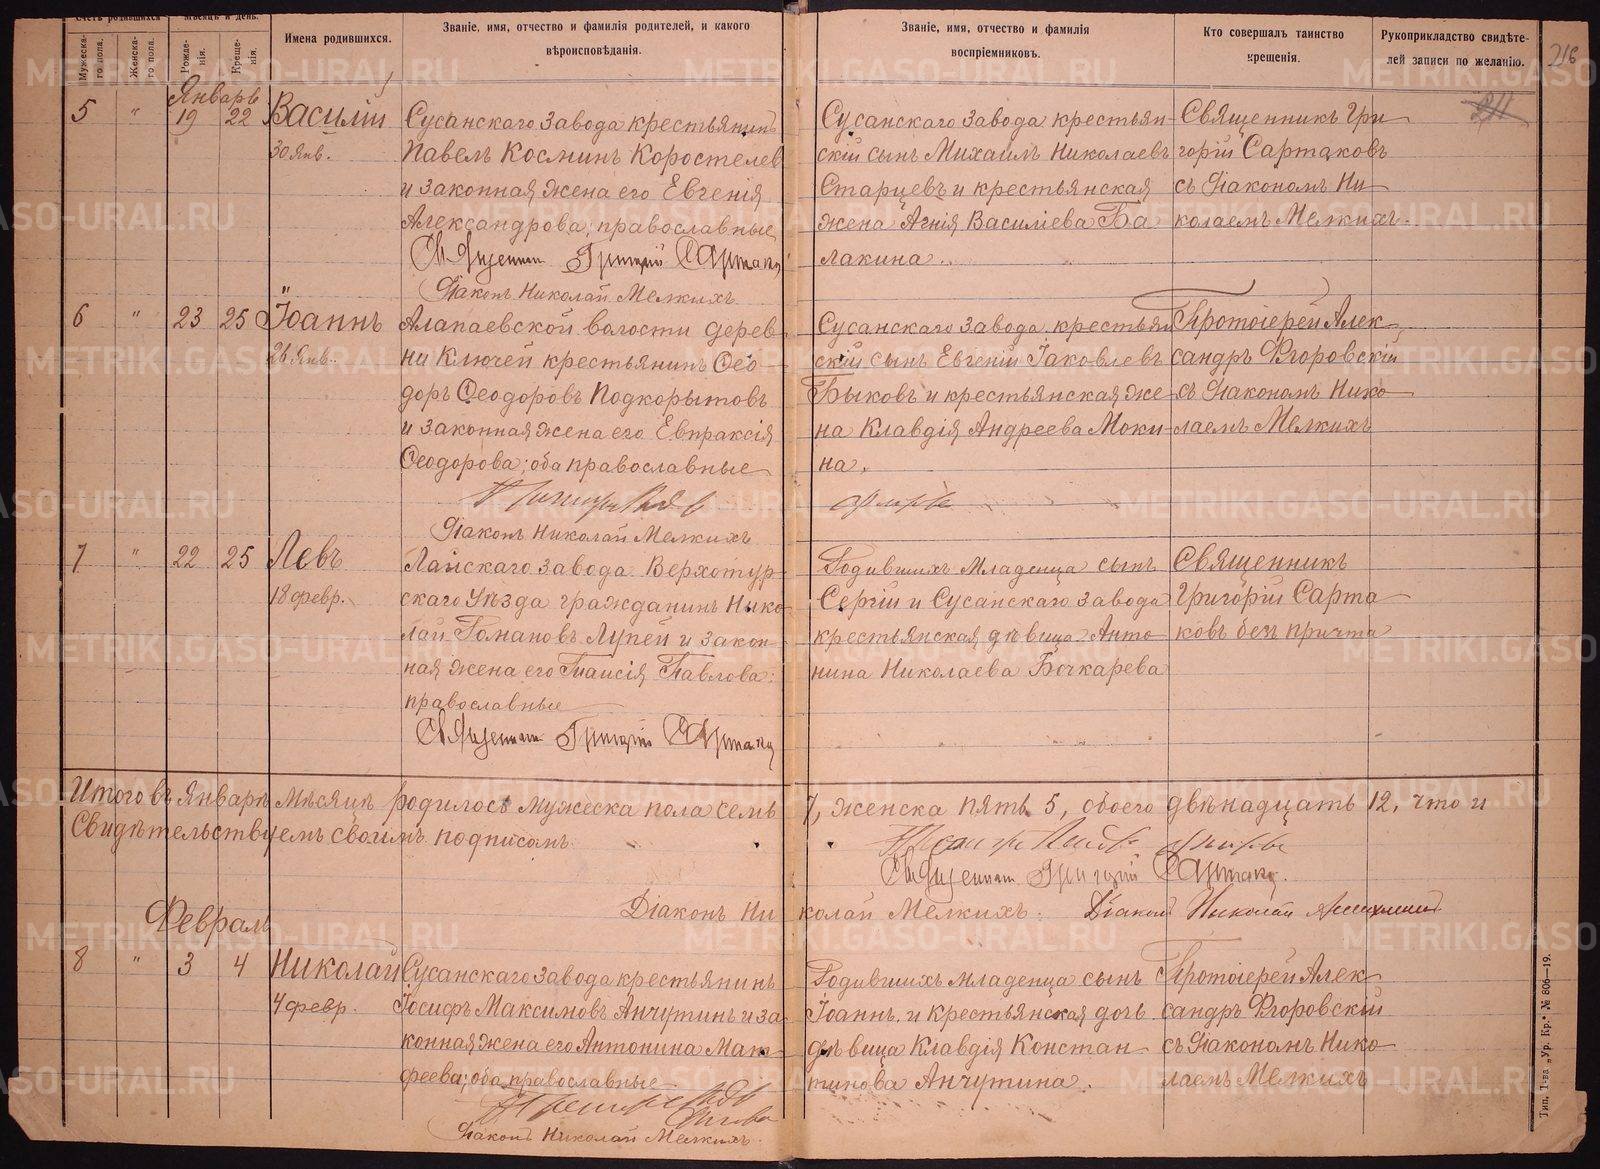 Счетъ родившихся
Мѣсяцъ и день.
Мужеска-
го пола.
Женска-
го пола.
Рожде-
нія.
Креще-
нія.
Имена родившихся.
Званіе, имя, отчество и фамилія родителей, и какого
вѣроисповѣданія.
Званіе, имя, отчество и фамилія
воспріемниковъ.
Кто совершалъ таинство
крещенія.
Рукоприкладство свидѣте-
лей записи по желанію.
216
Январь
5 " 19 22 Василій
30 Янв.
Сусанскаго завода крестьянинъ
Павелъ Космин Коростелев
и законная жена его Евгенія
Александрова; православные
Священник Григорій Сартаков
Діаконъ Николай Мелкихъ
Сусанскаго завода крестьян-
скій сынъ Михаилъ Николаевъ
Старцевъ и крестьянская
жена Агнія Василіева Ба-
лакина.
Священникъ Гри-
горій Сартаковъ
съ Діакономъ Ни-
колаемъ Мелкихъ.
6 " 23 25 Іоаннъ
26 Янв.
Алапаевской волости дерев-
ни Ключей крестьянинъ Ѳео-
доръ Ѳеодоровъ Подкорытовъ
и законная жена его Евпраксія
Ѳеодорова; оба православные
Діаконъ Николай Мелкихъ
Сусанскаго завода крестьян
скій сынъ Евгеній Іаковлевъ
Быковъ и крестьянская же-
на Клавдія Андреева Моки-
на.
Протоіерей Алек-
сандръ Флоровскій
съ Діакономъ Нико-
лаемъ Мелкихъ
7 " 22 25 Левъ
18 февр.
Лайскаго завода Верхотур-
скаго Уѣзда гражданинъ Нико-
лай Романовъ Лупей и закон-
ная жена его Таисія Павлова;
православные
Священник Григорій Сартаков
Родившихъ младенца сынъ
Сергій и Сусанскаго завода
крестьянская дѣвица Анто-
нина Николаева Бочкарева
Священникъ
Григорій Сарта-
ковъ безъ причта
Итого въ Январѣ мѣсяцѣ родилось мужеска пола семь 7, женска пять 5, обоего двѣнадцать 12, что и
Свидѣтельствуемъ своимъ подписомъ
Священник Григорій Сартаков.
Діаконъ Николай Мелкихъ. Діакон Николай
Февраль
8 " 3 4 Николай
4 февр.
Сусанскаго завода крестьянинъ
Іосифъ Максимовъ Анчутинъ и за-
конная жена его Антонина Мат-
феева; оба православные
Діаконъ Николай Мелкихъ.
Родившихъ младенца сынъ
Іоаннъ и крестьянская дочь
дѣвица Клавдія Констан-
тинова Анчутина.
Протоіерей Алек-
сандръ Флоровскій
съ Діакономъ Нико-
лаемъ Мелкихъ
Тип. Т-ва „Ур. Кр.“ № 806—19.
METRIKI.GASO-URAL.RU